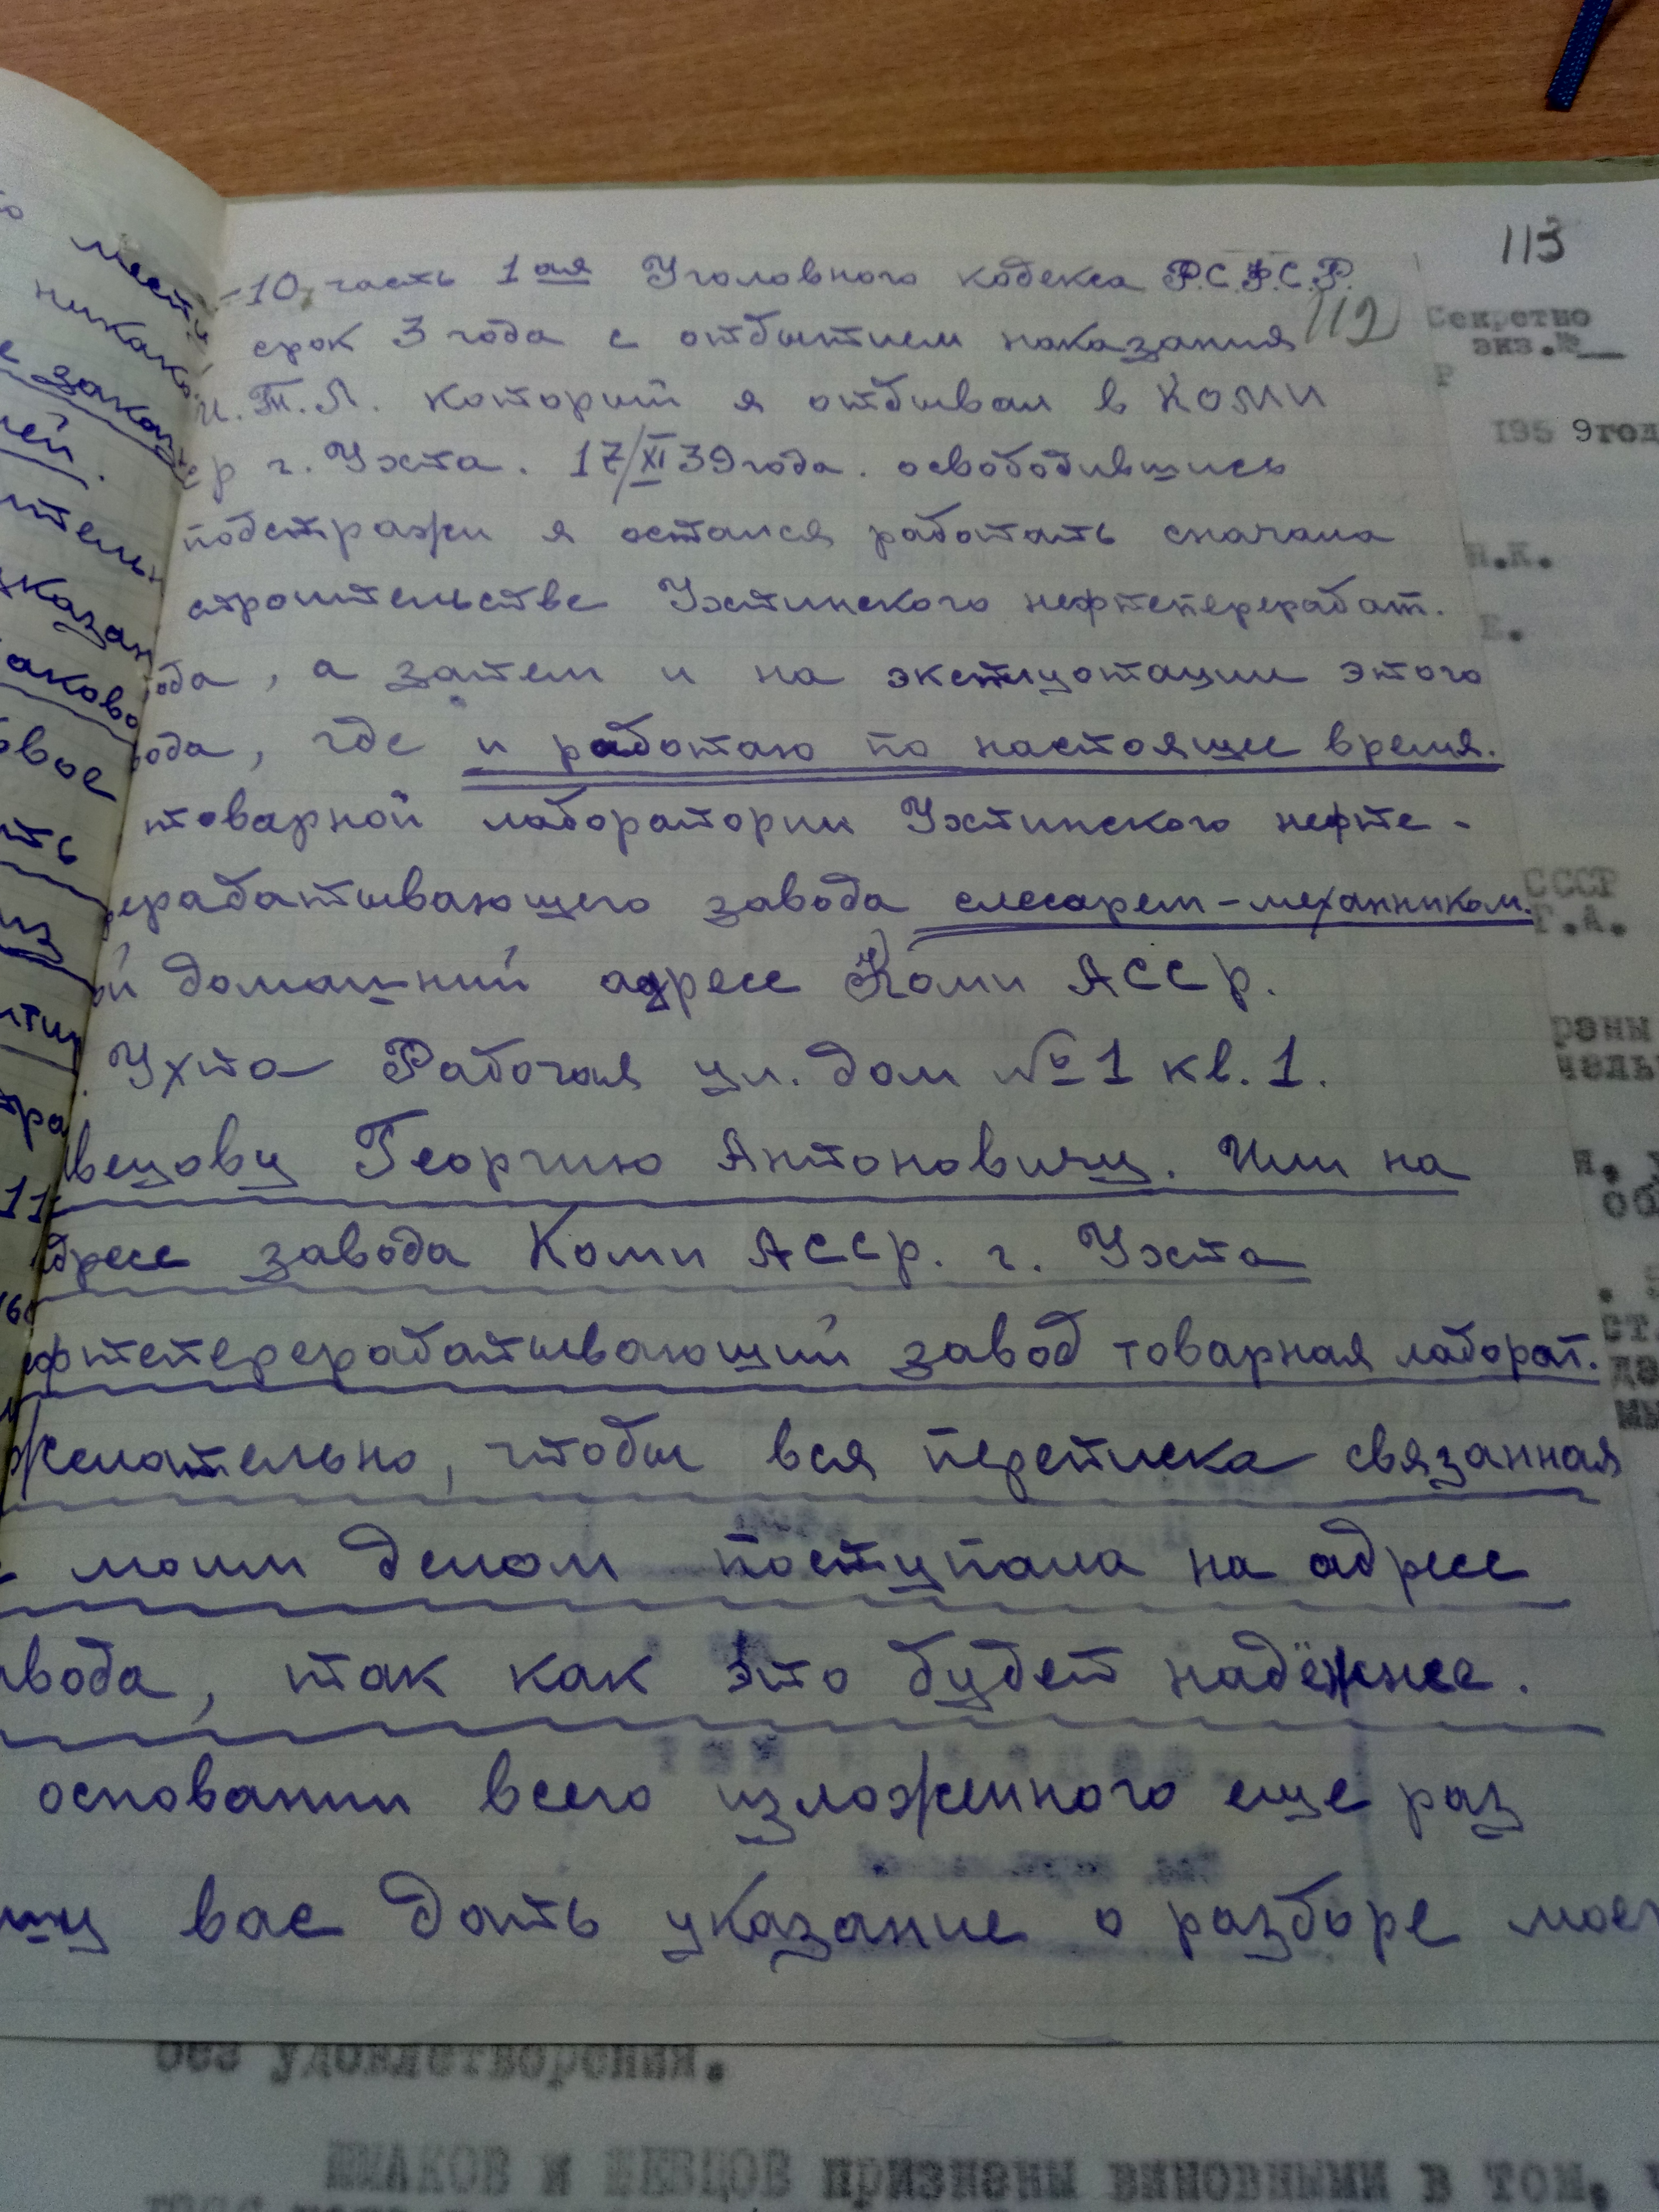 -10 часть 1ая Уголовного кодекса Р.С.Ф.С.Р.
срок 3 года с отбытием наказания
И.Т.Л. который я отбывал в Коми
г. Ухта. 17/XI 39 года. освободившись
подстражи я остался работать сначала
строительстве Ухтинского нефтеперерабат.
ода, а затем и на эксплуотации этого
ода, где и работаю по настоящее время.
товарной лаборатории Ухтинского нефте-
ерерабатывающего завода слесарем-механником.
й домашний адресс Коми АССР.
Ухта Рабочая ул. дом №1 кв. 1.
вецову Георгию Антоновичу. Или на
дресс завода Коми АССР. г. Ухта
ефтеперерабатывающий завод товарная лаборат.
желательно, чтобы вся переписка связанная
с моим делом поступала на адресс
авода, так как это будет надёжнее.
основании всего изложенного еще раз
ошу вас дать указание о разборе моег
113
112
Секретно
экз.№
195 9год
н.к.
СССР
Г.А.
без удовлетворения.
ШМАКОВ и ШЕВЦОВ признены виновными в том, ч
мест
никако
закон
ей.
ител
указан
аково
овое
ть
из
тра
11